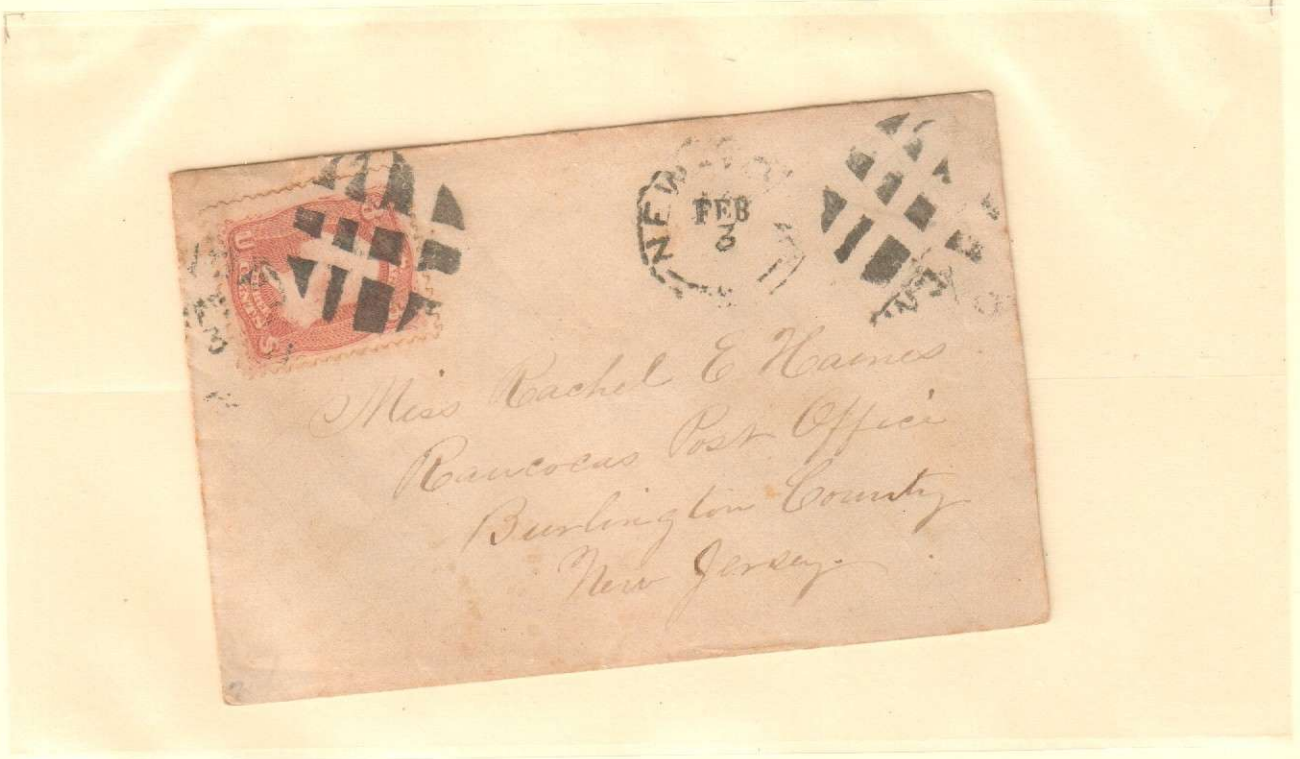 U S
CENTS
NEW
FEB
3
Miss Rachel E Haines
Rancocas Post Office
Burlington County
New Jersey.